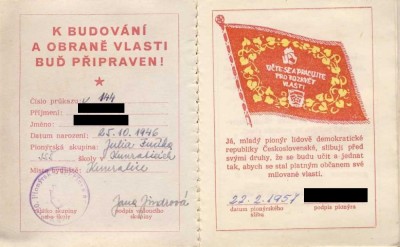 K BUDOVÁNÍ
A OBRANĚ VLASTI
BUĎ PŘIPRAVEN!
Číslo průkazu 144
Příjmení:
Jméno:
Datum narození: 25. 10. 1946
Pionýrská skupina: Julia Fučíka
školy v Kunraticích
Místo bydliště: Kunratice
Jana Jindrová
razítko skupiny
podpis vedoucího
UČTE SE A PRACUJTE
PRO ROZKVĚT
VLASTI
Já, mladý pionýr lidově demokratické
republiky Československé, slibuji před
svými druhy, že se budu učit a jednat
tak, abych se stal platným občanem své
milované vlasti.
22. 2. 1957
datum pionýrského
slibu
podpis pionýra